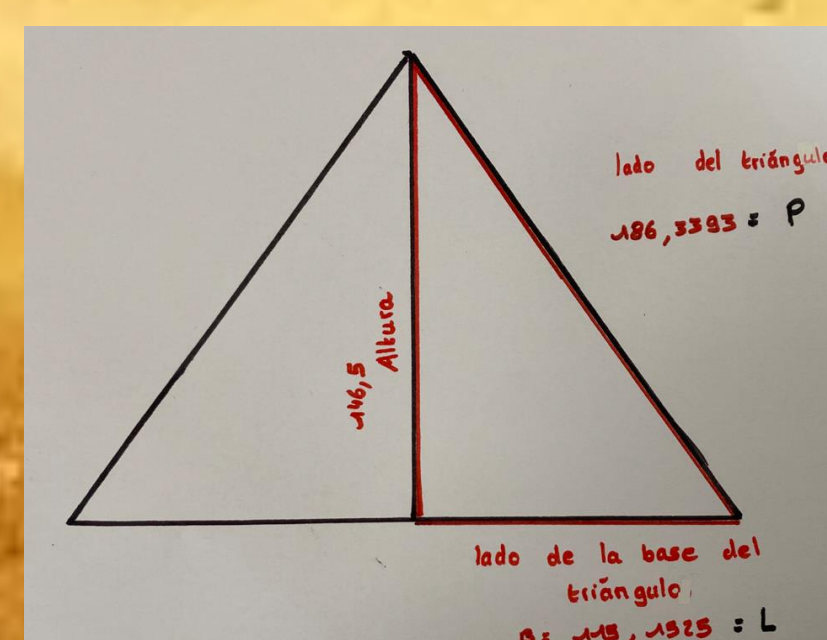 lado del triángulo
186,3393 = P
146,5
Altura
lado de la base del
triángulo
115,1525 = L